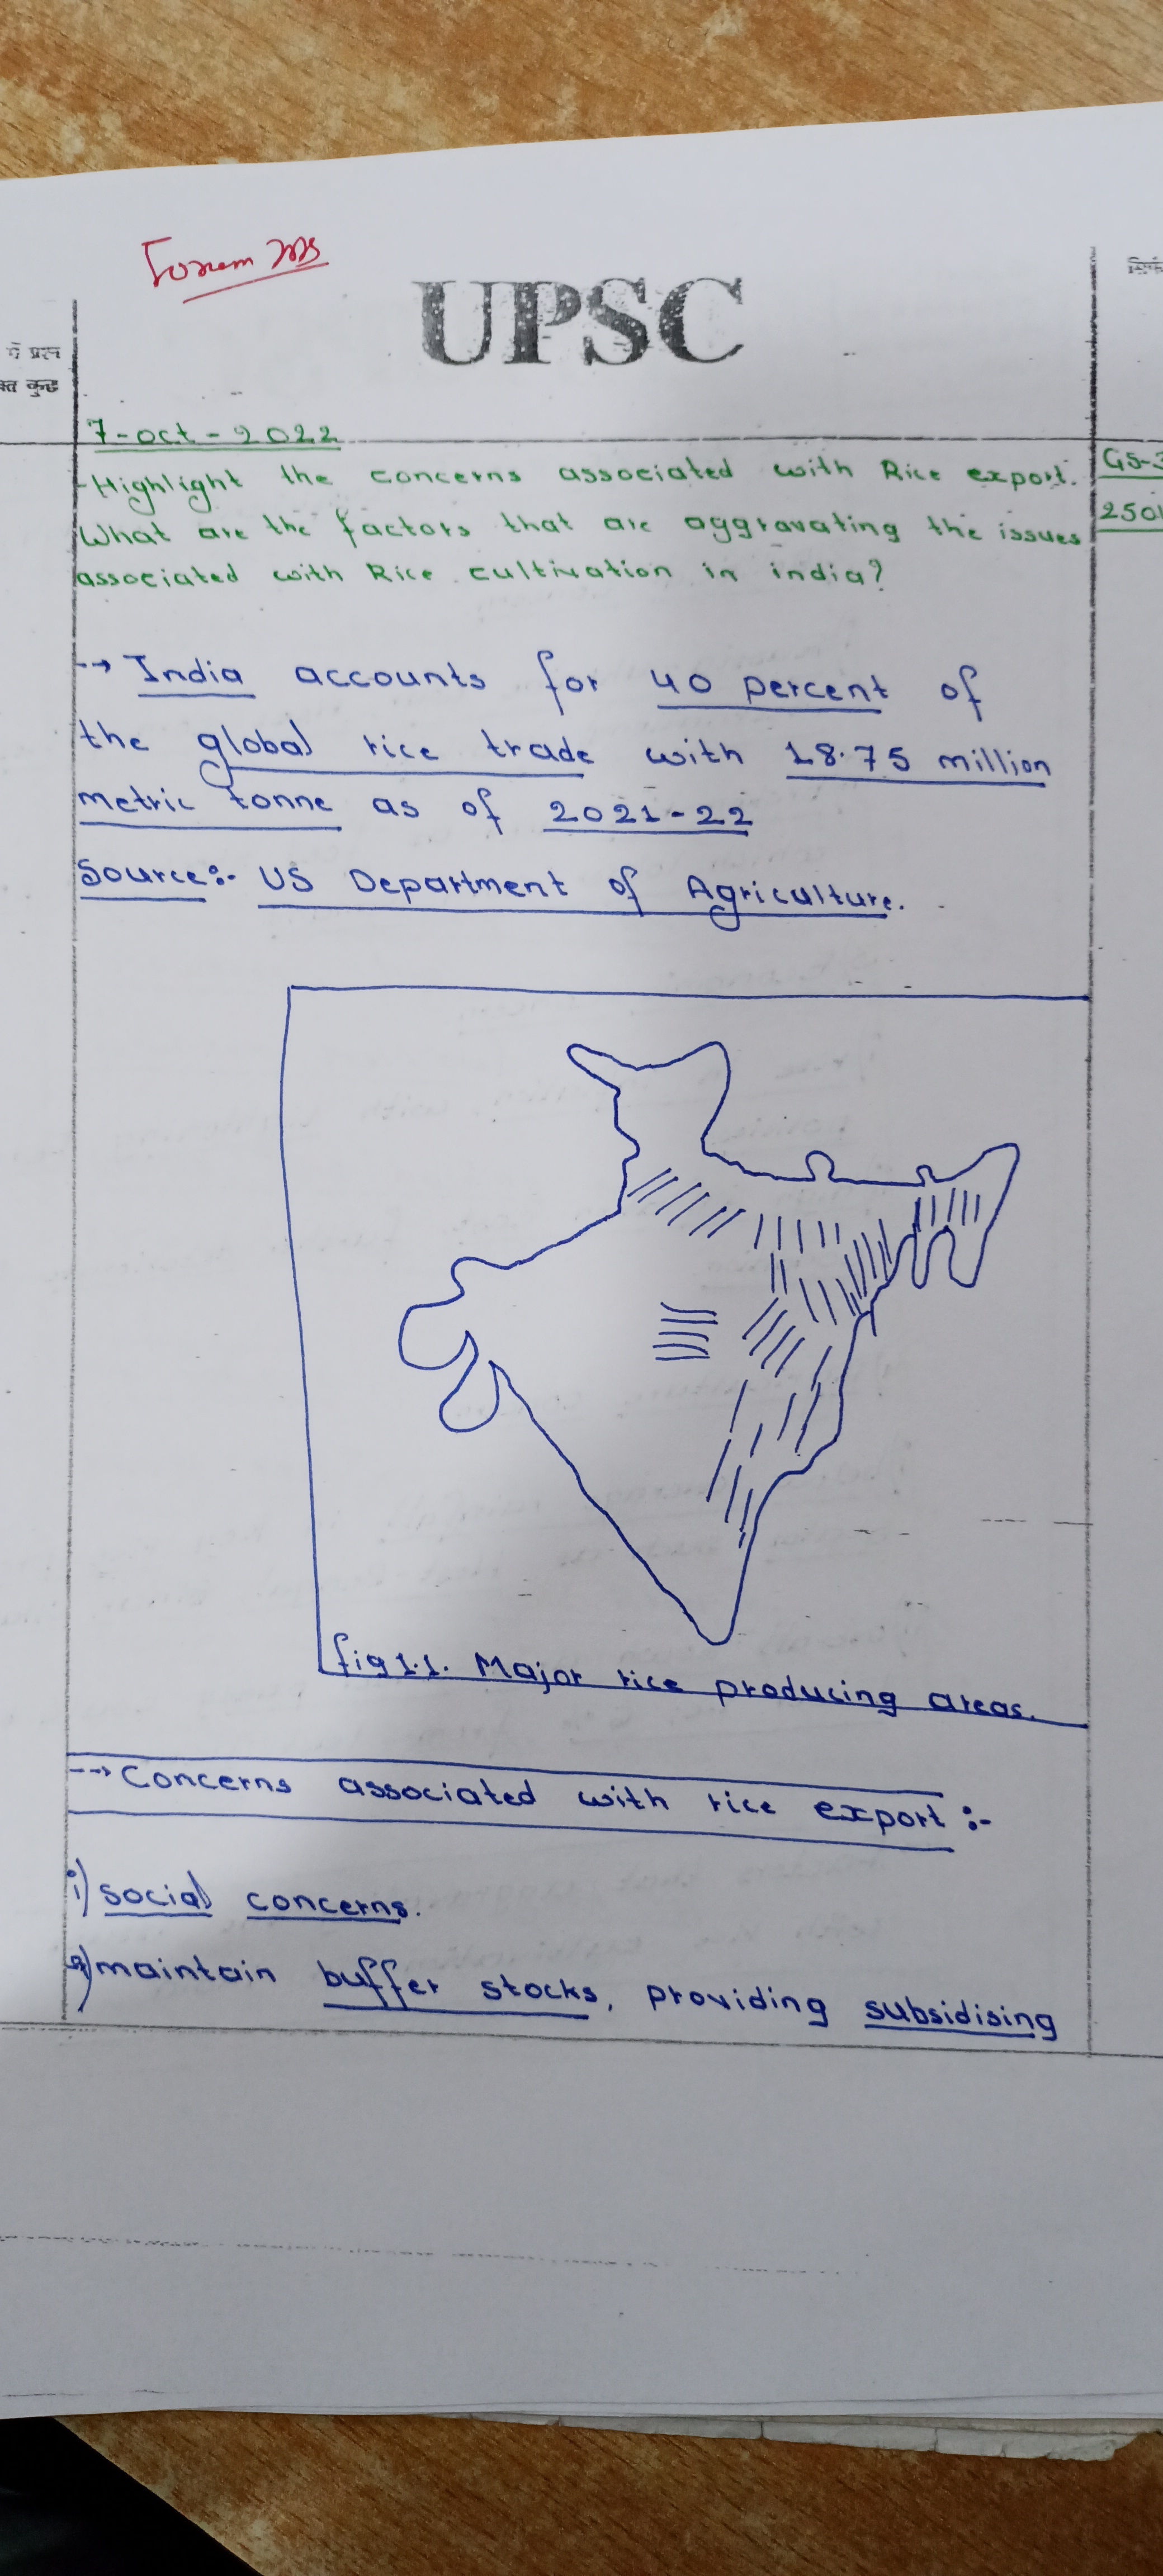 Forum IAS
UPSC
में प्रश्न
कुछ
7-oct-2022
Highlight the concerns associated with Rice export.
What are the factors that are aggravating the issues
associated with Rice cultivation in india?
GS-3
250
--> India accounts for 40 percent of
the global rice trade with 18.75 million
metric tonne as of 2021-22
Source:- US Department of Agriculture.
fig 1.1. Major rice producing areas.
--> Concerns associated with rice export :-
i) social concerns.
a) maintain buffer stocks, providing subsidising